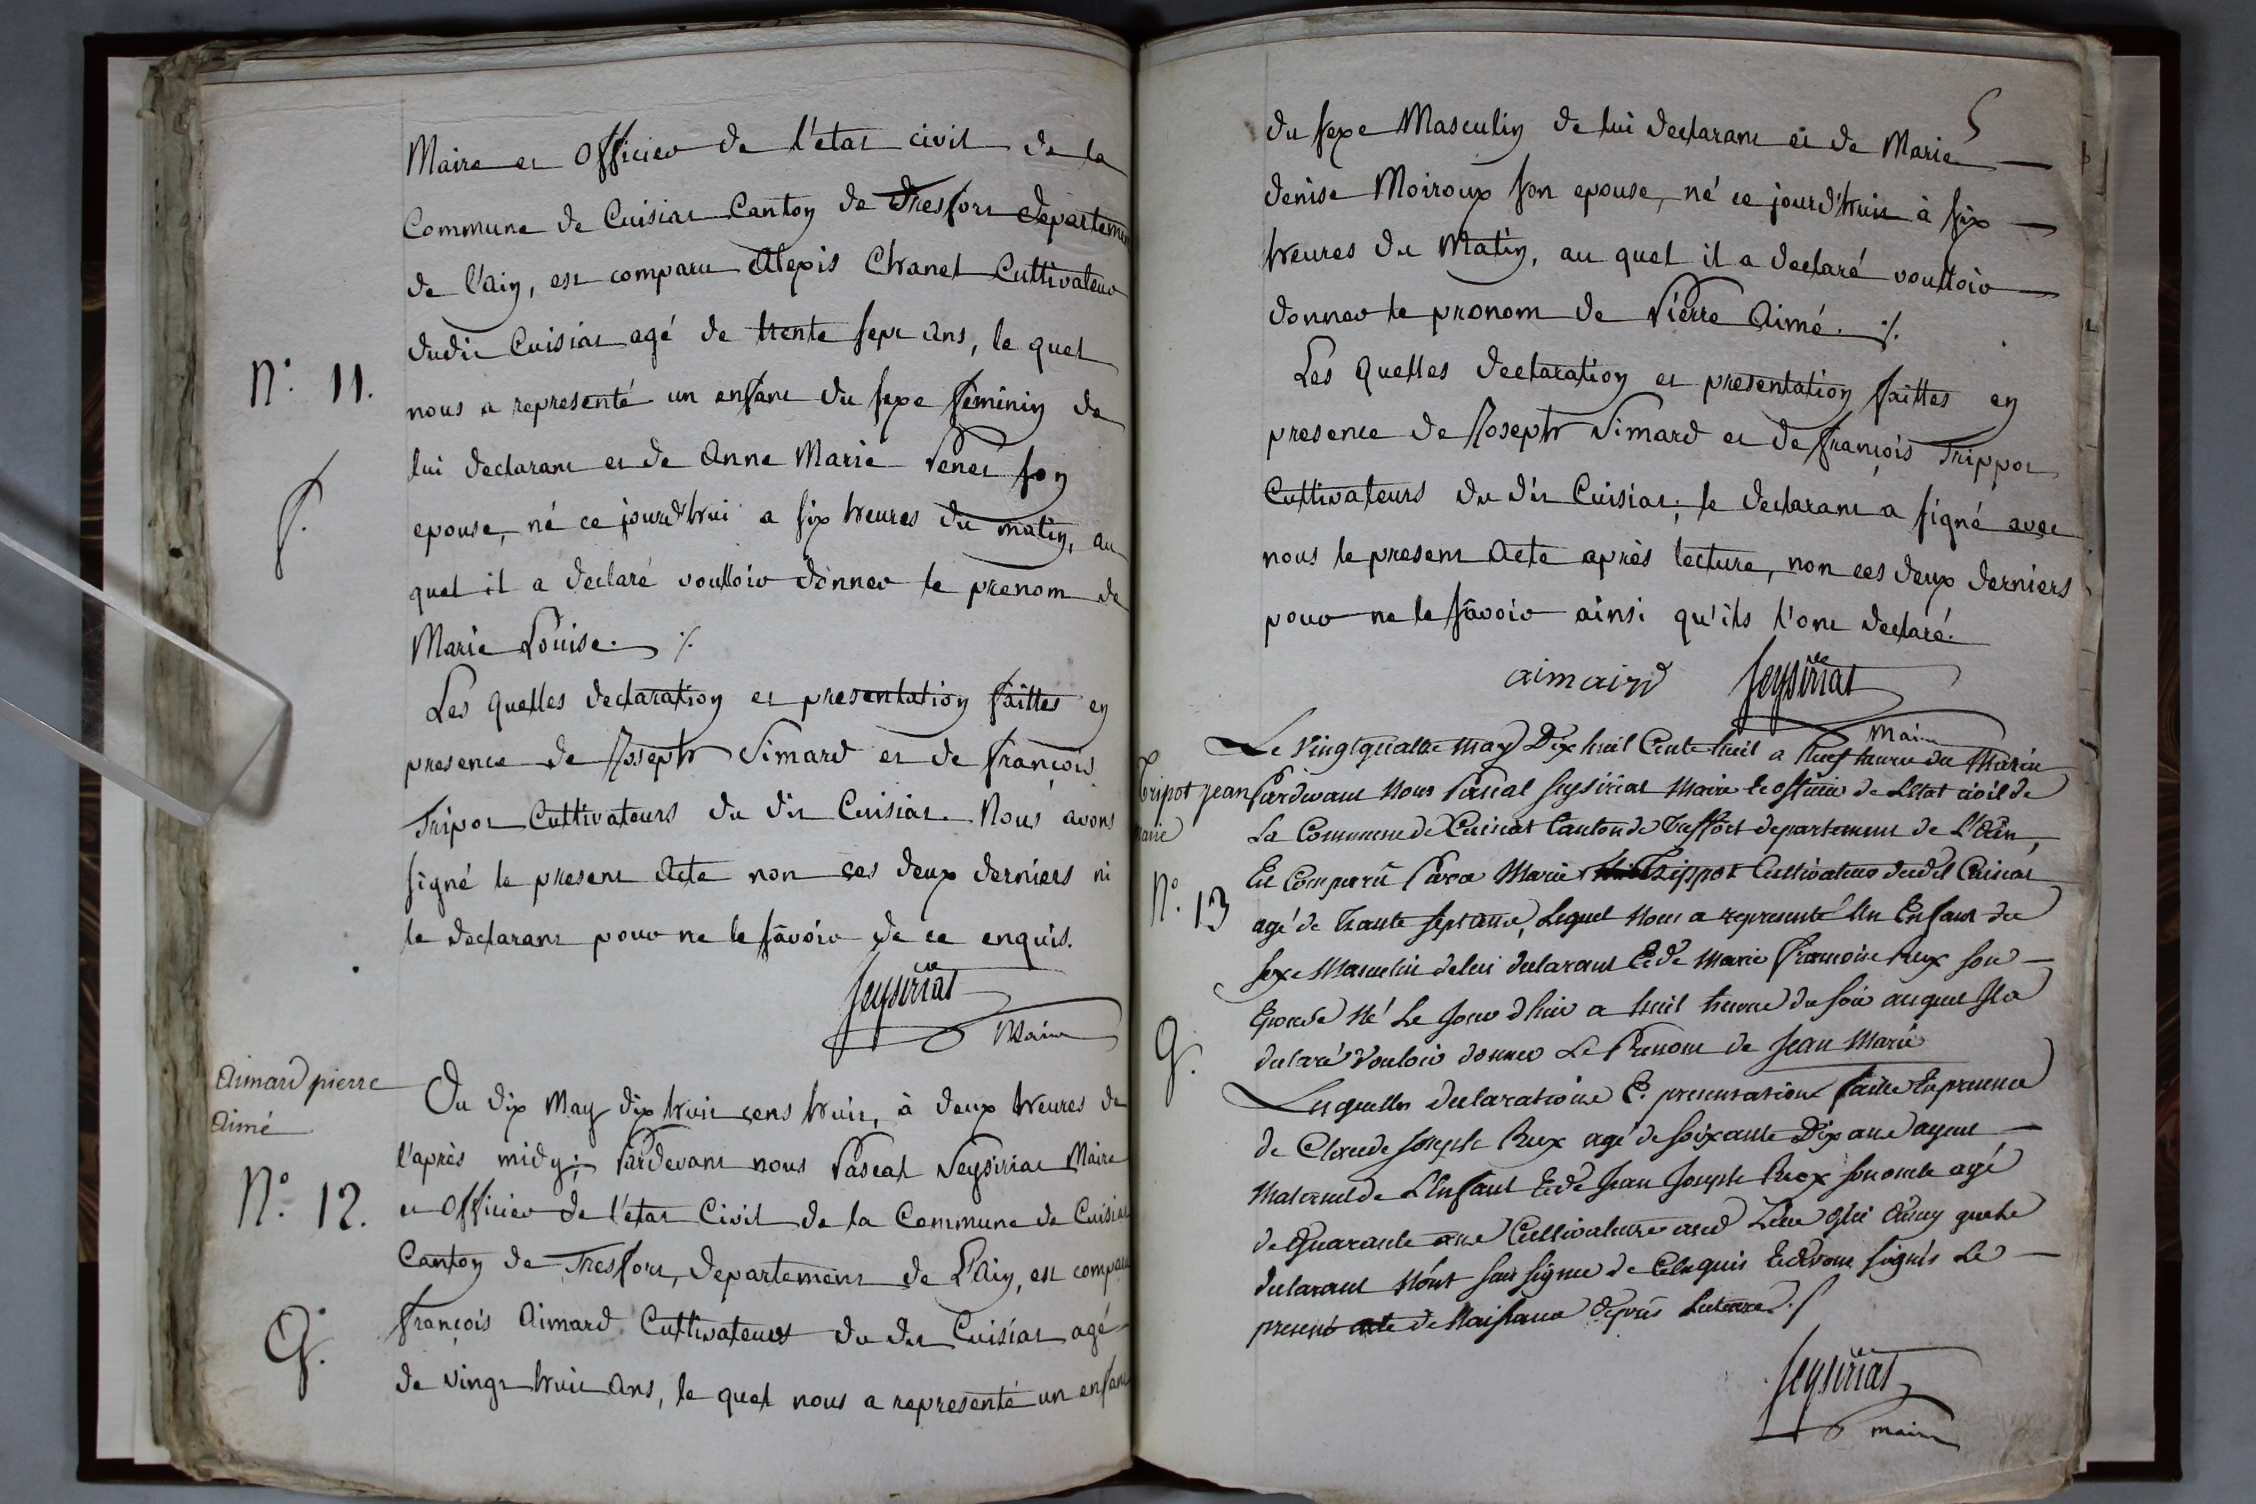 Maire et officier de l'etat civil de la
Commune de Cuisiat Canton de Tresfort departement
de l'ain, est comparu Alexis Chanel Cultivateur
dudit Cuisiat agé de trente sept ans, le quel
N.° 11.
nous a representé un enfant du sexe féminin de
lui declarant et de Anne Marie Penet son
f.
epouse, né ce jourd'hui a six heures du matin, au
quel il a declaré voulloir donner le prenom de
Marie Louise. ./.
Les quelles declaration et presentation faittes en
presence de Joseph Simard et de françois
Tripot Cultivateurs du dit Cuisiat. Nous avons
signé le present Acte non ces deux derniers ni
le declarant pour ne le sâvoir de ce enquis.
Seysiriat
Maire
Aimard pierre
Aimé
Du dix May dix huit cens huit, à deux heures de
l'après midy; Pardevant nous Pascal Seysiriat Maire
N.° 12.
et officier de l'état Civil de la Commune de Cuisiat
Canton de Tresfort, departement de L'Ain, est comparu
G.
françois Aimard Cultivateurs du dit Cuisiat agé
de vingt huit Ans, le quel nous a representé un enfant
5
du sexe Masculin de lui declarant et de Marie
denise Moiroux son epouse, né ce jourd'huit à six
heures du Matin, au quel il a declaré voulloir
donner le pronom de Pierre Aimé. ./.
Les Quelles declaration et presentation faittes en
presence de Joseph Simard et de françois Trippot
Cultivateurs du dit Cuisiat; le declarant a signé avec
nous le present Acte après lecture, non ces deux derniers
pour ne le sâvoir ainsi qu'ils l'ont declaré.
aimaird Seysiriat
Maire
Le vingt quatre may Dix huit Cents huit a neuf heures du Matin
Tripot jean
marie
Pardevant Nous Pascal Seysiriat Maire et officier de Letat civil de
La Commune de Cuisiat Canton de Treffort departement de L'Ain,
N.° 13
Est Comparû Marie Trippot Cultivateur dudit Cuisiat
agé de Trante sept ans, Lequel Nous a representé Un Enfant du
sexe Masculin de lui declarant Et de Marie francoise Rux son
G.
Epouse Né Le Jour d'hier a huit heures du soir auquel Il a
declaré Vouloir donner Le Prenom de Jean Marie
Lesquelles declarations Et presentation faites En presence
de Claude Joseph Rux agé de soixante Dix ans ayeul
Maternel de L'Enfant Et de Jean Joseph Rux son oncle agé
de Quarante ans Cultivateurs
declarant N'ont signer de Enquis Et avons signés Le
present acte de Naissance après Lecture ./.
Seysiriat
maire